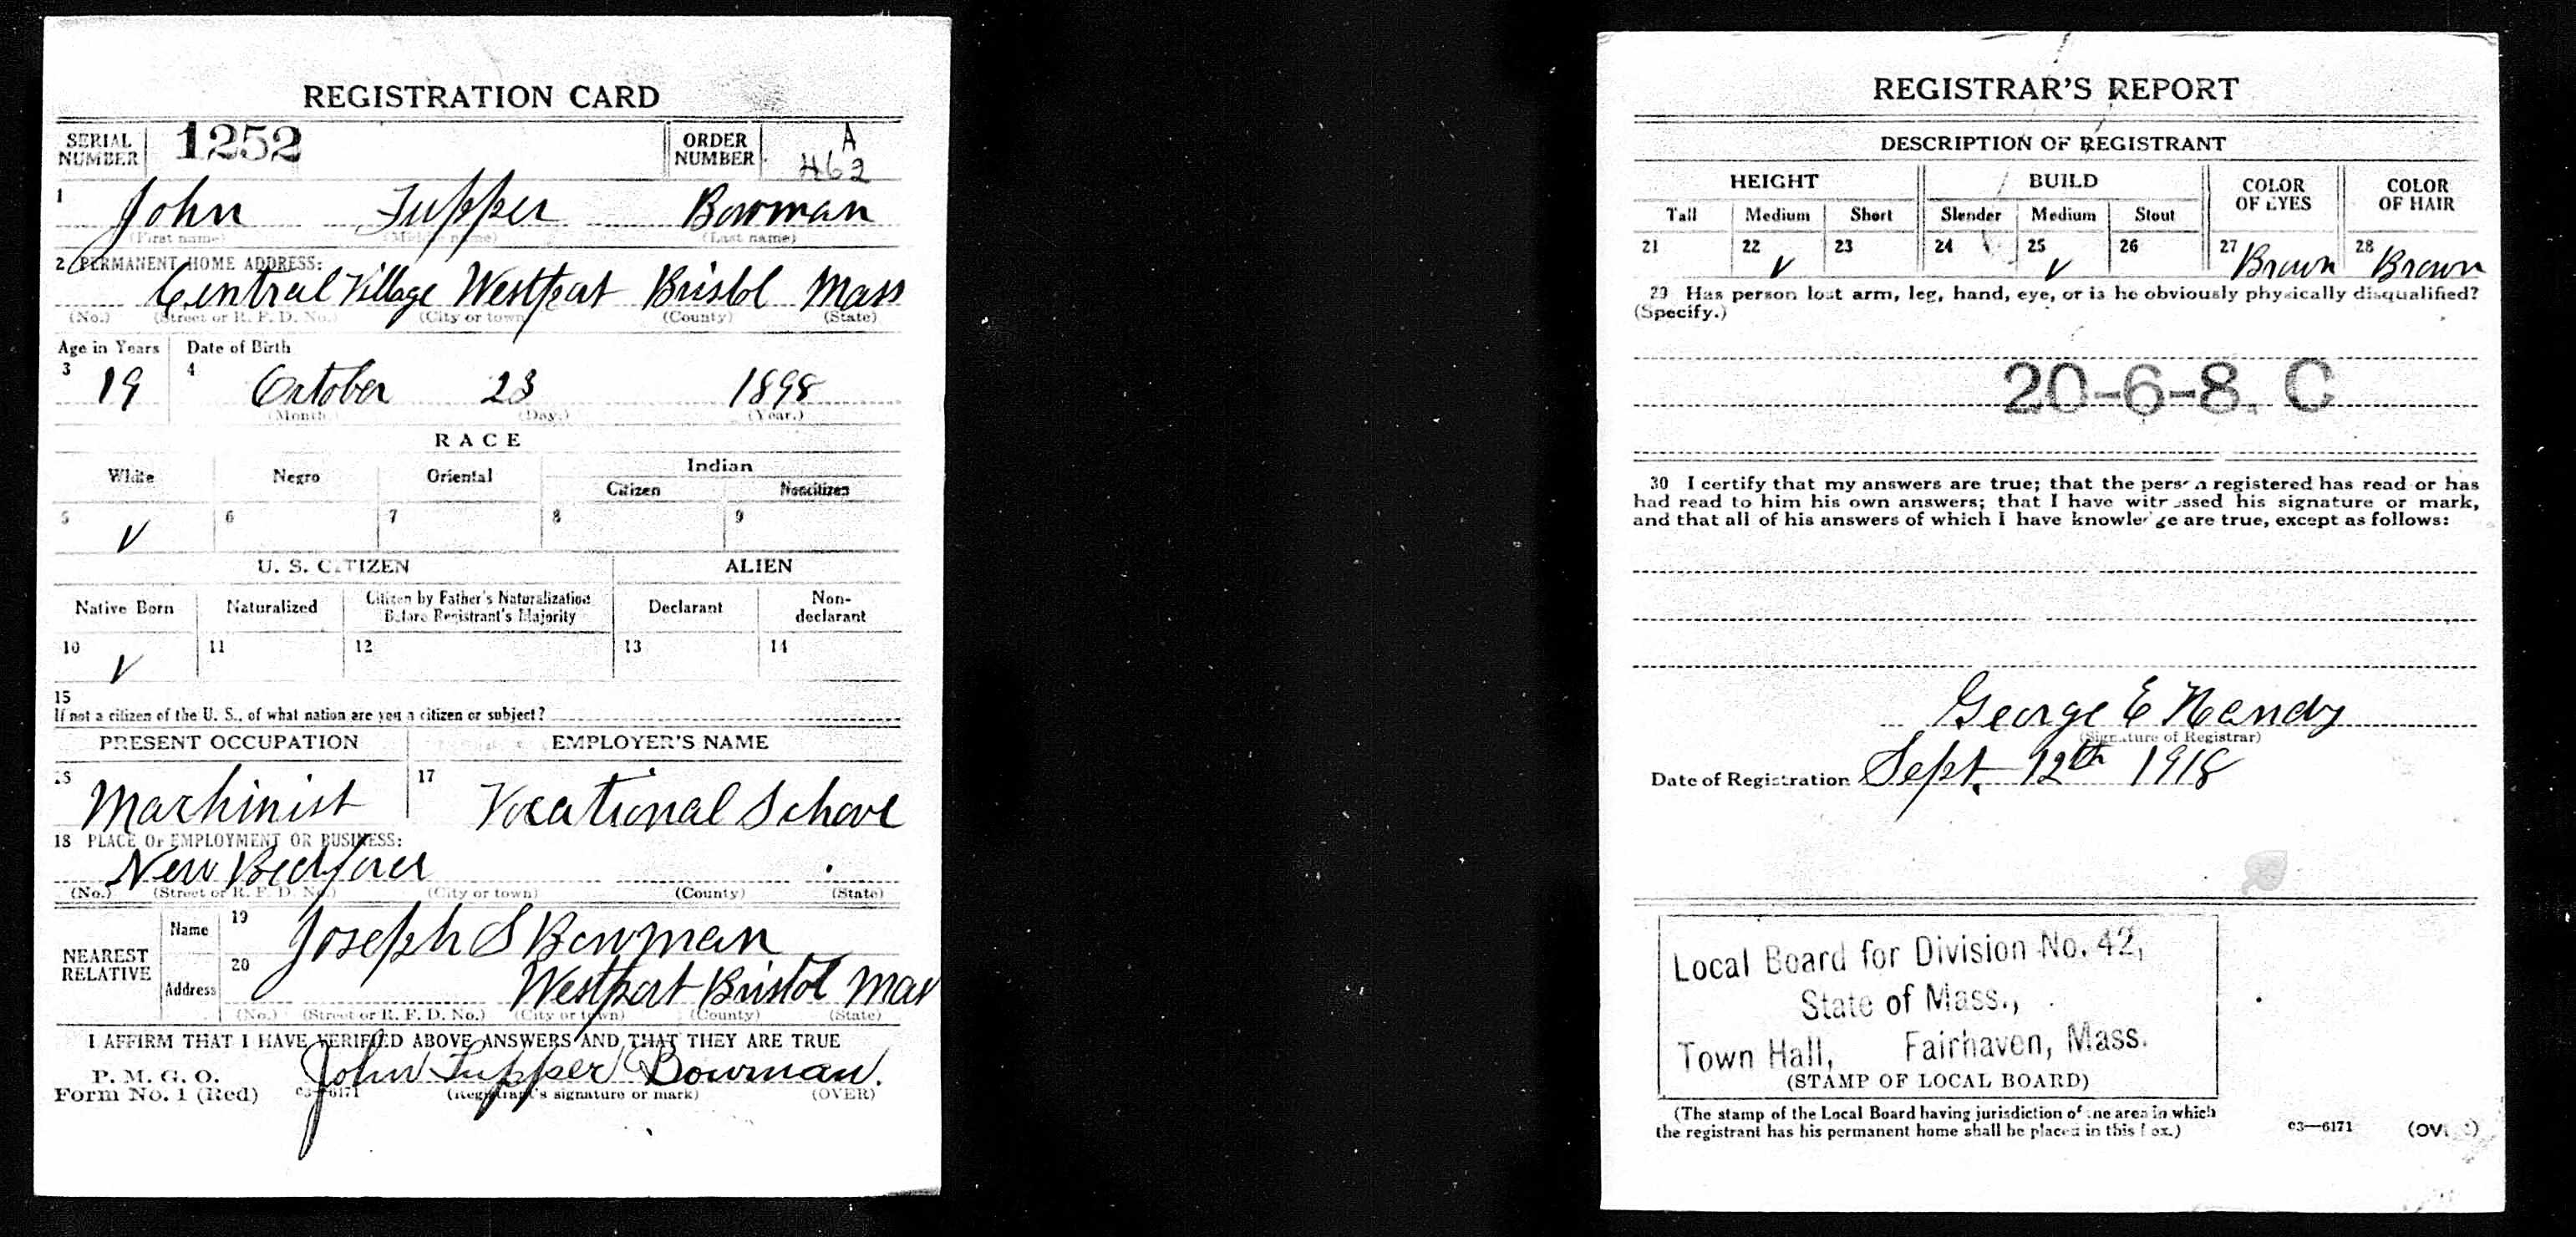 REGISTRATION CARD
SERIAL NUMBER 1252 ORDER NUMBER A 462
1 John Tupper Bowman
(First name) (Middle name) (Last name)
2 PERMANENT HOME ADDRESS:
Central Village Westport Bristol Mass
(No.) (Street or R. F. D. No.) (City or town) (County) (State)
Age in Years Date of Birth
3 19 4 October 23 1898
(Month.) (Day.) (Year.)
RACE
White Negro Oriental Indian
Citizen Noncitizen
5 V 6 7 8 9
U. S. CITIZEN ALIEN
Native Born Naturalized Citizen by Father's Naturalization Before Registrant's Majority Declarant Non-declarant
10 V 11 12 13 14
15
If not a citizen of the U. S., of what nation are you a citizen or subject?
PRESENT OCCUPATION EMPLOYER'S NAME
16 Machinist 17 Vocational School
18 PLACE OF EMPLOYMENT OR BUSINESS:
New Bedford
(No.) (Street or R. F. D. No.) (City or town) (County) (State)
NEAREST RELATIVE Name 19 Joseph S Bowman
Address 20 Westport Bristol Mas
(No.) (Street or R. F. D. No.) (City or town) (County) (State)
I AFFIRM THAT I HAVE VERIFIED ABOVE ANSWERS AND THAT THEY ARE TRUE
P. M. G. O.
Form No. 1 (Red) c3—6171 John Tupper Bowman.
(Registrant's signature or mark) (OVER)
REGISTRAR'S REPORT
DESCRIPTION OF REGISTRANT
HEIGHT BUILD COLOR OF EYES COLOR OF HAIR
Tall Medium Short Slender Medium Stout
21 22 V 23 24 25 V 26 27 Brown 28 Brown
29 Has person lost arm, leg, hand, eye, or is he obviously physically disqualified?
(Specify.)
20-6-8. C
30 I certify that my answers are true; that the person registered has read or has
had read to him his own answers; that I have witnessed his signature or mark,
and that all of his answers of which I have knowledge are true, except as follows:
George E Handy
(Signature of Registrar)
Date of Registration Sept. 12th 1918
Local Board for Division No. 42,
State of Mass.,
Town Hall, Fairhaven, Mass.
(STAMP OF LOCAL BOARD)
(The stamp of the Local Board having jurisdiction of the area in which
the registrant has his permanent home shall be placed in this box.)
c3—6171 (OVER)